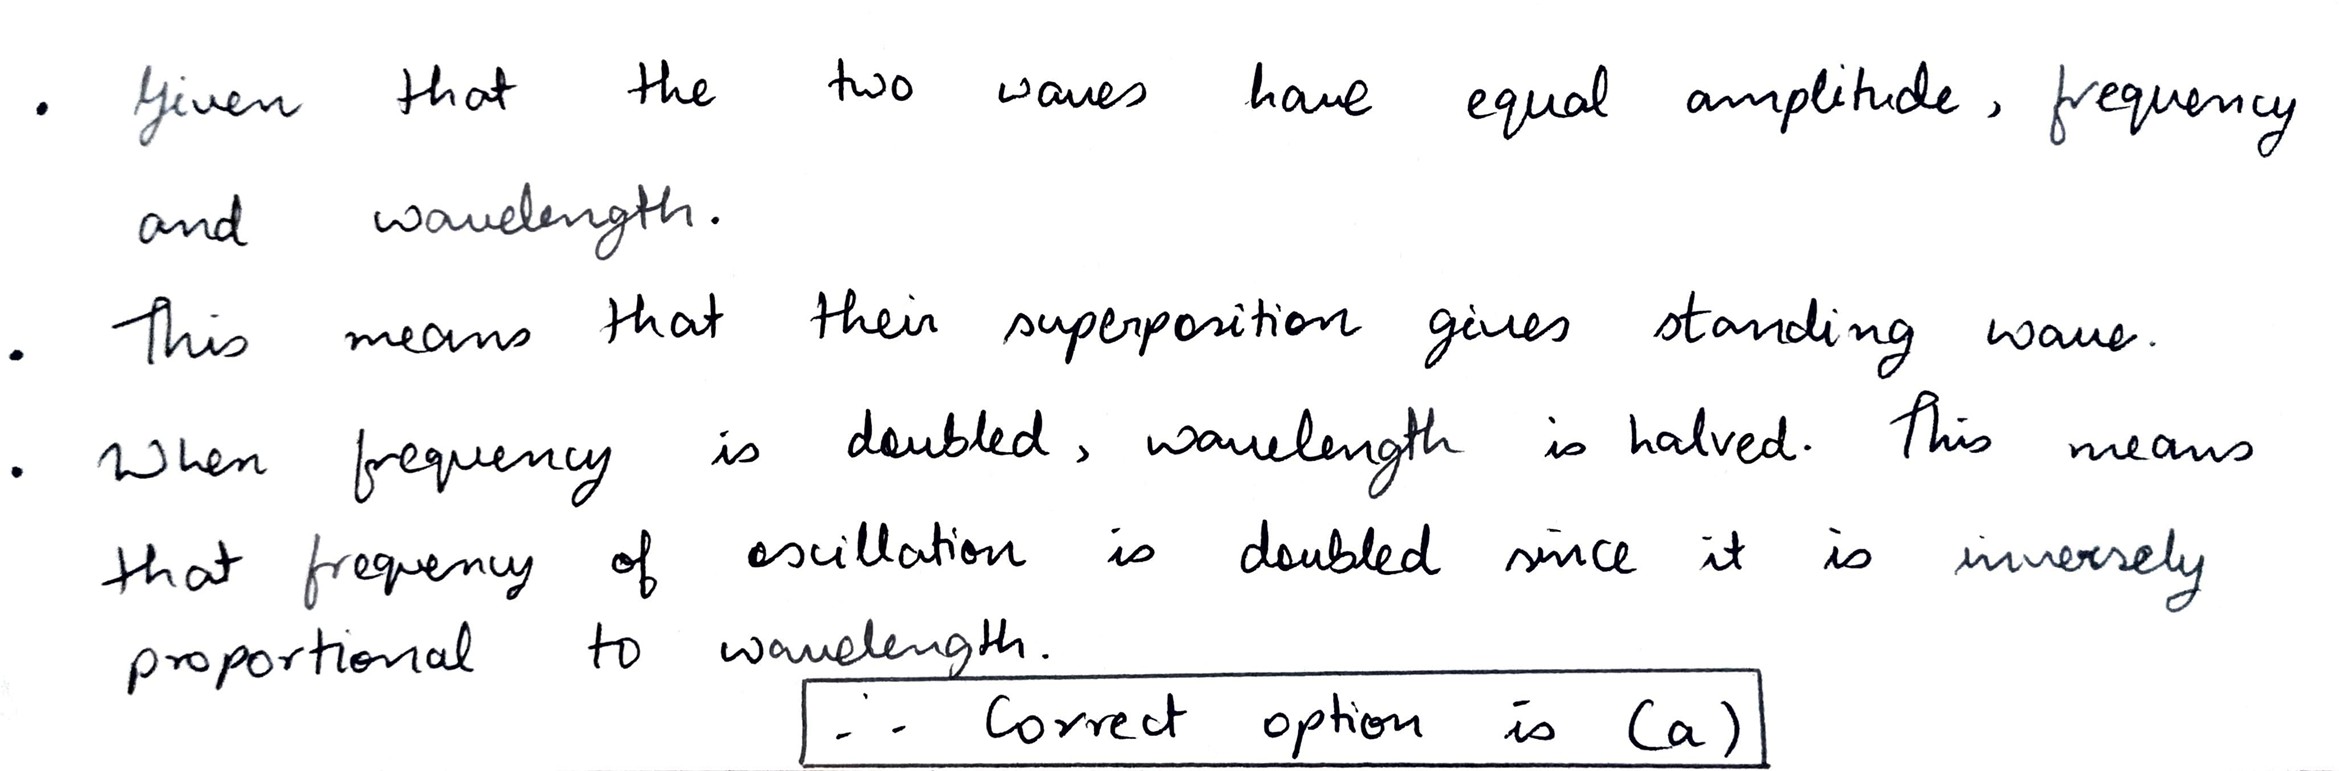 • Given that the two waves have equal amplitude, frequency
and wavelength.
• This means that their superposition gives standing wave.
• When frequency is doubled, wavelength is halved. This means
that frequency of oscillation is doubled since it is inversely
proportional to wavelength.
∴ Correct option is (a)